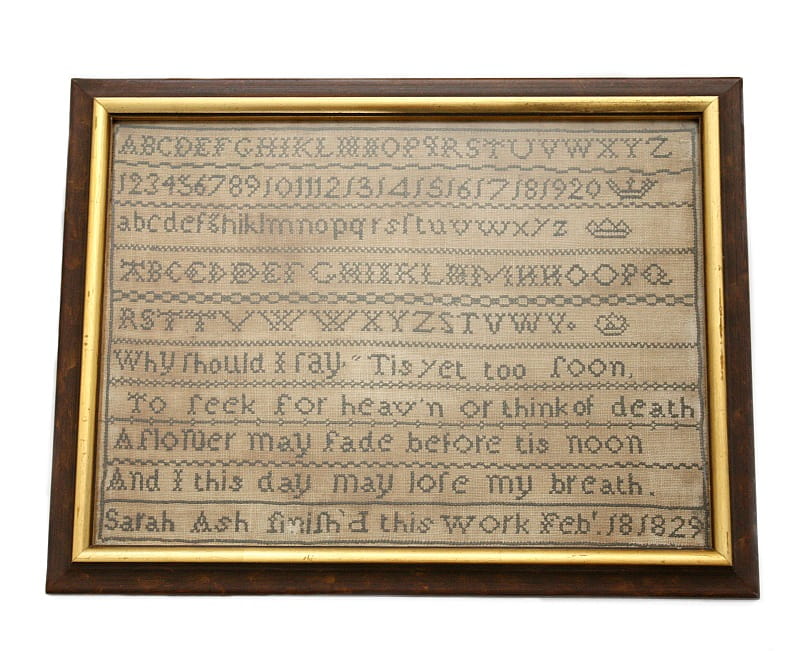 ABCDEFGHIKLMNOPQRSTUVWXYZ
1234567891011121314151617181920
abcdefghiklmnopqrsſtuvwxyz
ABCCDDEFGHIIKLMMNNOOPQ
RSTTVWWXYZSTUWY.
Why ſhould I ſay, "Tis yet too ſoon,
To ſeek for heav'n or think of death
A flower may fade before tis noon
And I this day may loſe my breath.
Sarah Ash finiſh'd this work Feb' 18 1829